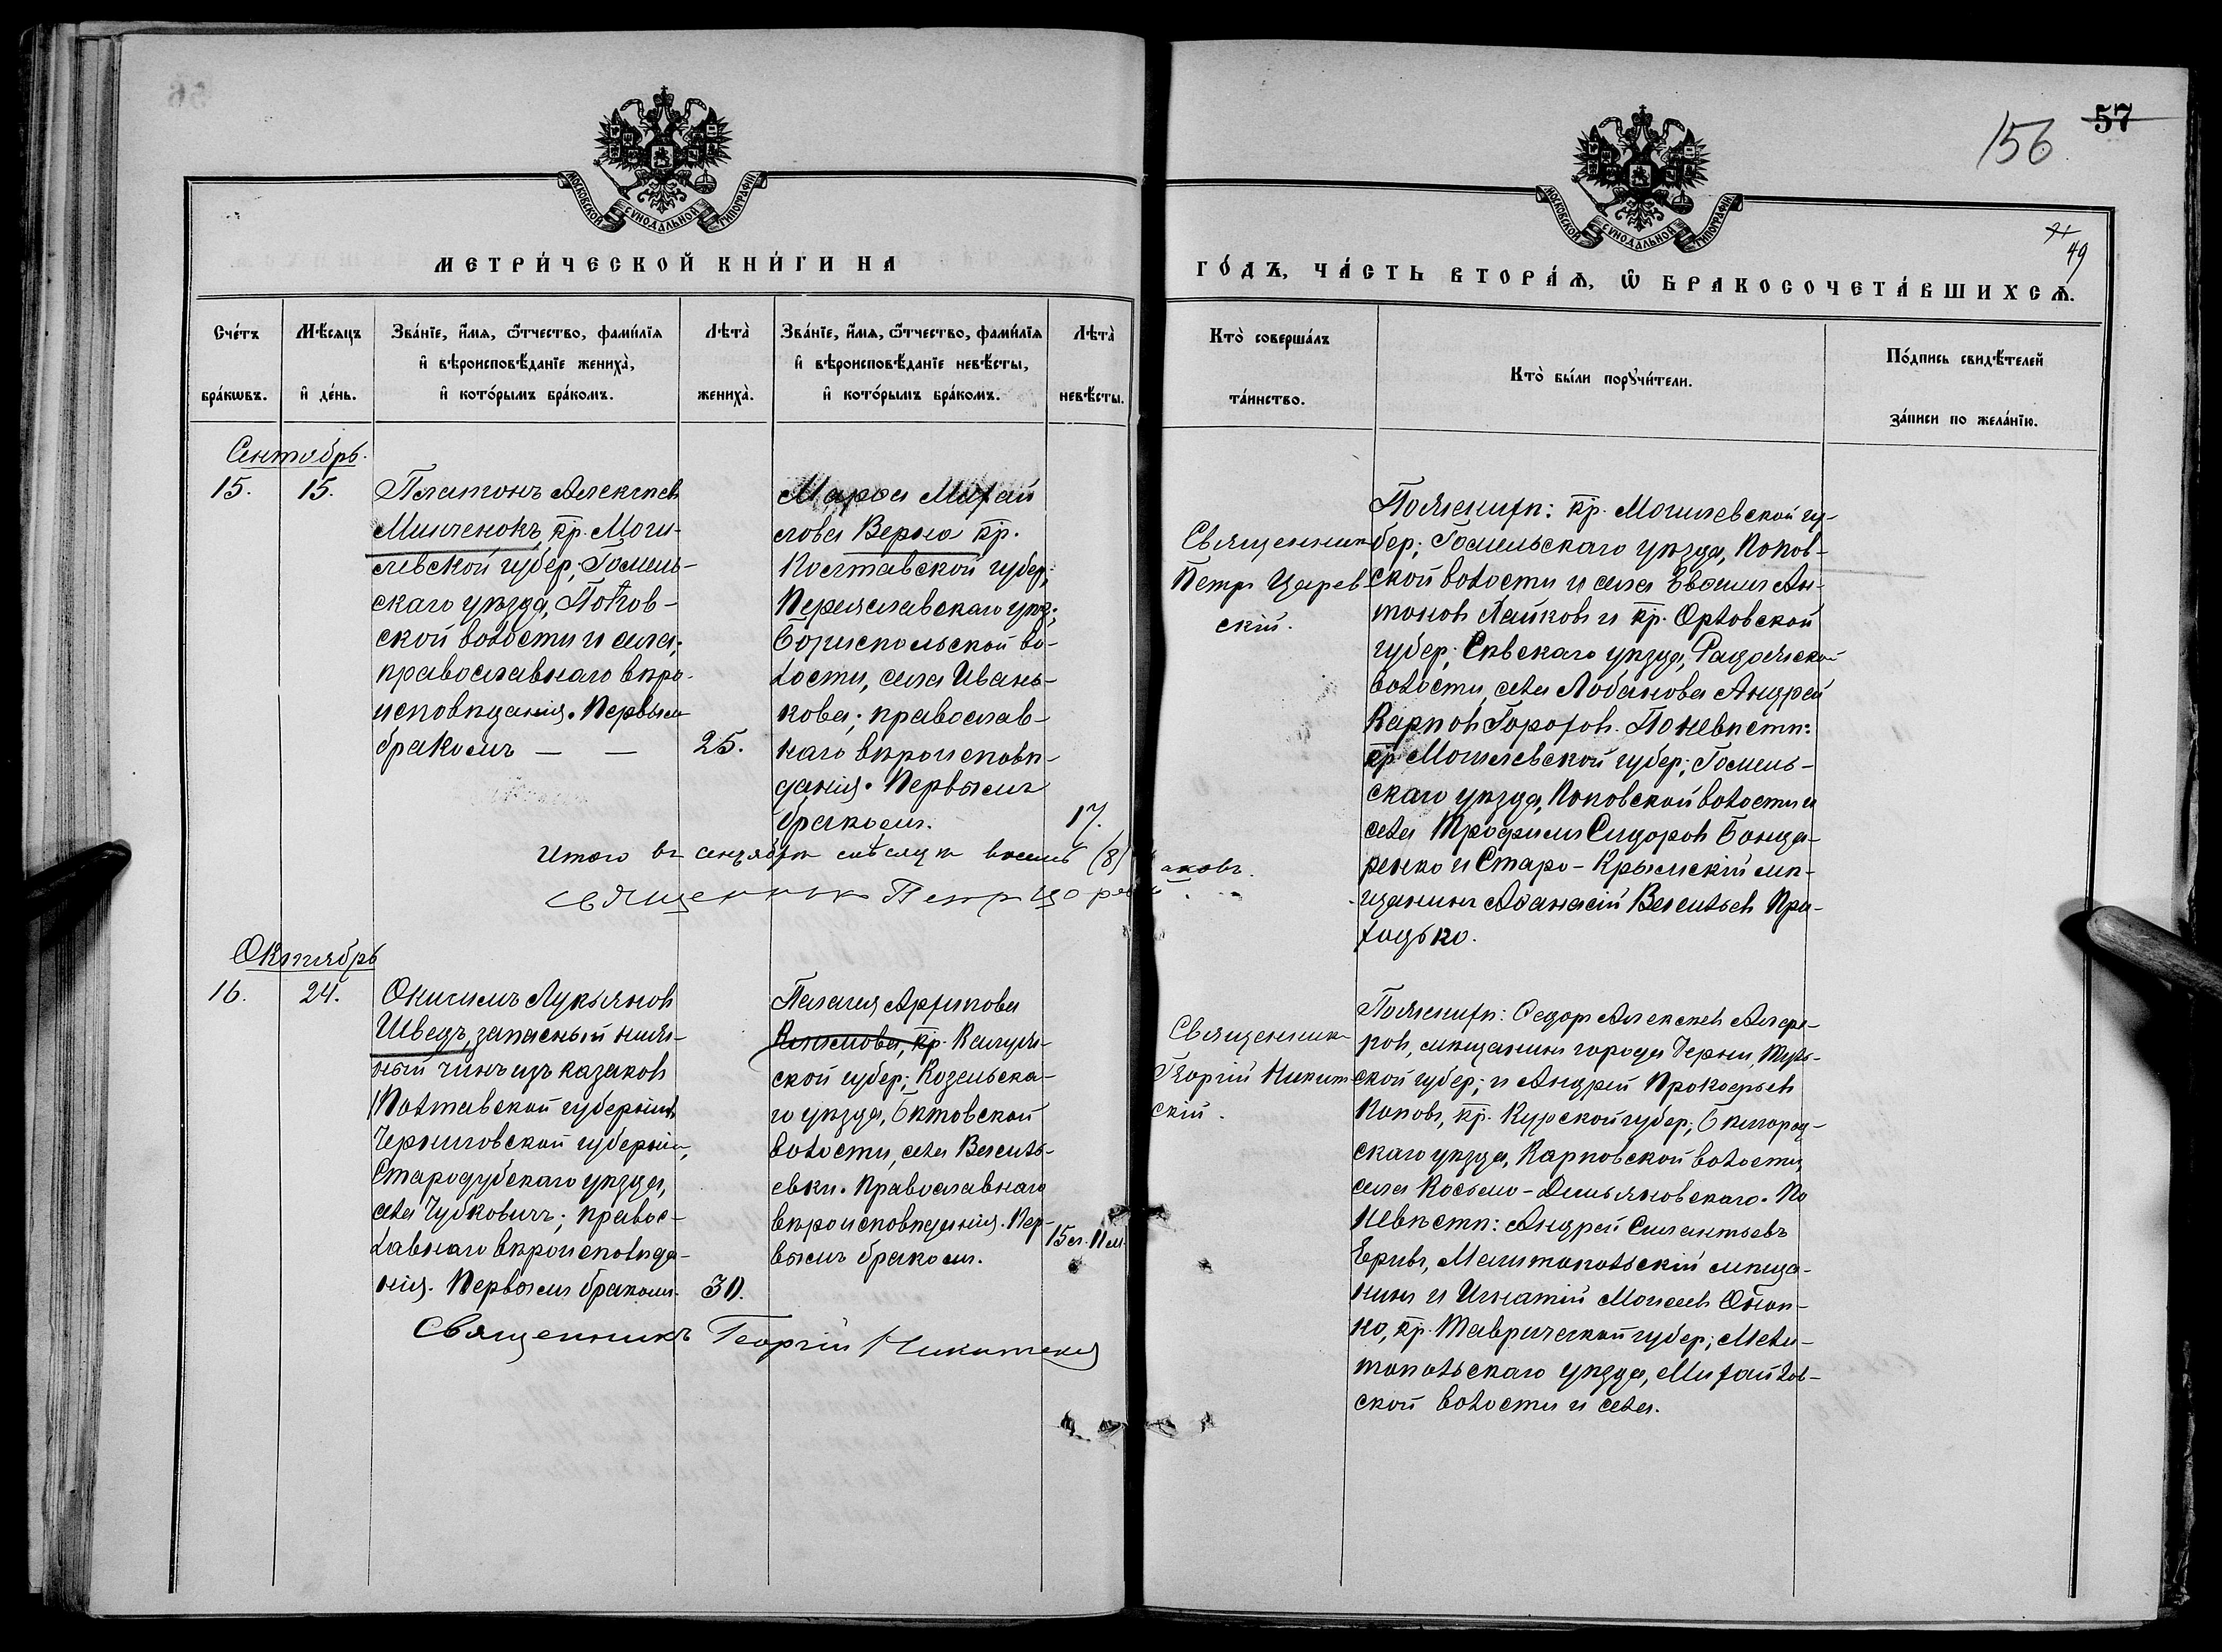 156
57
49
МОСКОВСКОЙ СѴНОДАЛЬНОЙ ТИПОГРАФІИ
МОСКОВСКОЙ СѴНОДАЛЬНОЙ ТИПОГРАФІИ
МЕТРИ́ЧЕСКОЙ КНИ́ГИ НА
ГО́ДЪ, ЧА́СТЬ ВТОРА́Ѧ, Ѡ҆ БРАКОСОЧЕТА́ВШИХСѦ.
Сче́тъ бра́кѡвъ.
Мѣ́сяцъ и҆ де́нь.
Зва́нїе, и҆́мѧ, ѻ҆́тчество, фами́лїѧ
и҆ вѣроисповѣ́данїе жениха̀,
и҆ кото́рымъ бра́комъ.
Лѣта̀ жениха̀.
Зва́нїе, и҆́мѧ, ѻ҆́тчество, фами́лїѧ
и҆ вѣроисповѣ́данїе невѣ́сты,
и҆ кото́рымъ бра́комъ.
Лѣта̀ невѣ́сты.
Кто̀ соверша́лъ
та́инство.
Кто̀ бы́ли порꙋчи́тели.
По́дпись свидѣ́телей
за́писи по жела́нїю.
Сентябрь.
15.
15.
Платонъ Алексѣевъ
Минченокъ, кр. Моги-
левской губер., Гомель-
скаго уѣзда, Попов-
ской волости и села;
православнаго вѣро-
исповѣданія. Первымъ
бракомъ — —
25.
Марѳа Михай
лова Верна кр.
Полтавской губер.,
Переяславскаго уѣз.,
Бориспольской во-
лости, села Ивань-
кова; православ-
наго вѣроисповѣ-
данія. Первымъ
бракомъ.
17.
Священникъ
Петръ Царев-
скій.
По женихѣ: кр. Могилевской гу-
бер., Гомельскаго уѣзда, Попов-
ской волости и села Евѳимъ Ан-
тоновъ Лайковъ и кр. Орловской
губер., Сѣвскаго уѣзда, Радожской
волости, села Лобанова Андрей
Карповъ Гороховъ. По невѣстѣ:
кр. Могилевской губер., Гомель-
скаго уѣзда, Поповской волости и
села Трофимъ Сидоровъ Бонда-
ренко и Старо-Крымскій мѣ-
щанинъ Аѳанасій Васильевъ При-
ходько.
Итого въ сентябрѣ мѣсяцѣ восемь (8)
аковъ.
Священникъ Петръ Царев
Октябрь
16.
24.
Онисимъ Лукьяновъ
Шведъ, запасный ниж-
ній чинъ изъ казаковъ
Полтавской губерніи,
Черниговской губерніи,
Стародубскаго уѣзда,
села Чубковичъ; правос-
лавнаго вѣроисповѣда-
нія. Первымъ бракомъ.
30.
Пелагія Архипова
Климова, кр. Калуж-
ской губер., Козельска-
го уѣзда,
волости, села Василь-
евки. Православнаго
вѣроисповѣданія. Пер-
вымъ бракомъ.
15 л. 11 м.
Священникъ
Георгій Никит
скій.
По женихѣ: Ѳедоръ Алексѣевъ Алфе-
ровъ, мѣщанинъ города Черни, Туль-
ской губер., и Андрей Прокофьевъ
Поповъ, кр. Курской губер., Бѣлгород-
скаго уѣзда, Карповской волости,
села Косьмо-Демьяновскаго. По
невѣстѣ: Андрей Силантьевъ
Мелитопольскій мѣща-
нинъ и Игнатій Моисеевъ Оноп-
ко, кр. Таврической губер., Мели-
топольскаго уѣзда, Михайлов-
ской волости и села.
Священникъ Георгій Никитскій